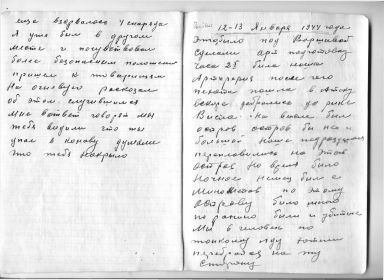 еще взорвалось 4 снаряда
я уже был в другом
месте и почувствовал
более безопасном положении
пришел к товарищам
На огневую рассказал
об этом случившимся
Мне ответ говорят мы
тебя видили что ты
упал в канаву думали
что тебя накрыло
12-13 Января 1944 года
Это было под Варшавой
сделали арт подготовку
часа 2½ била наша
Артилерия после чего
пехота пошла в атаку
вскоре добрались до реки
Висла. На висле был
остров остров бы не
большой наше подразделение
переправились на этот
остров Но время было
Ночное немец бил с
Минометов по этому
острову было много
по ранило были и убитые
Мы 8 человек по
тонкому льду хотели
перебраться на ту
Сторону